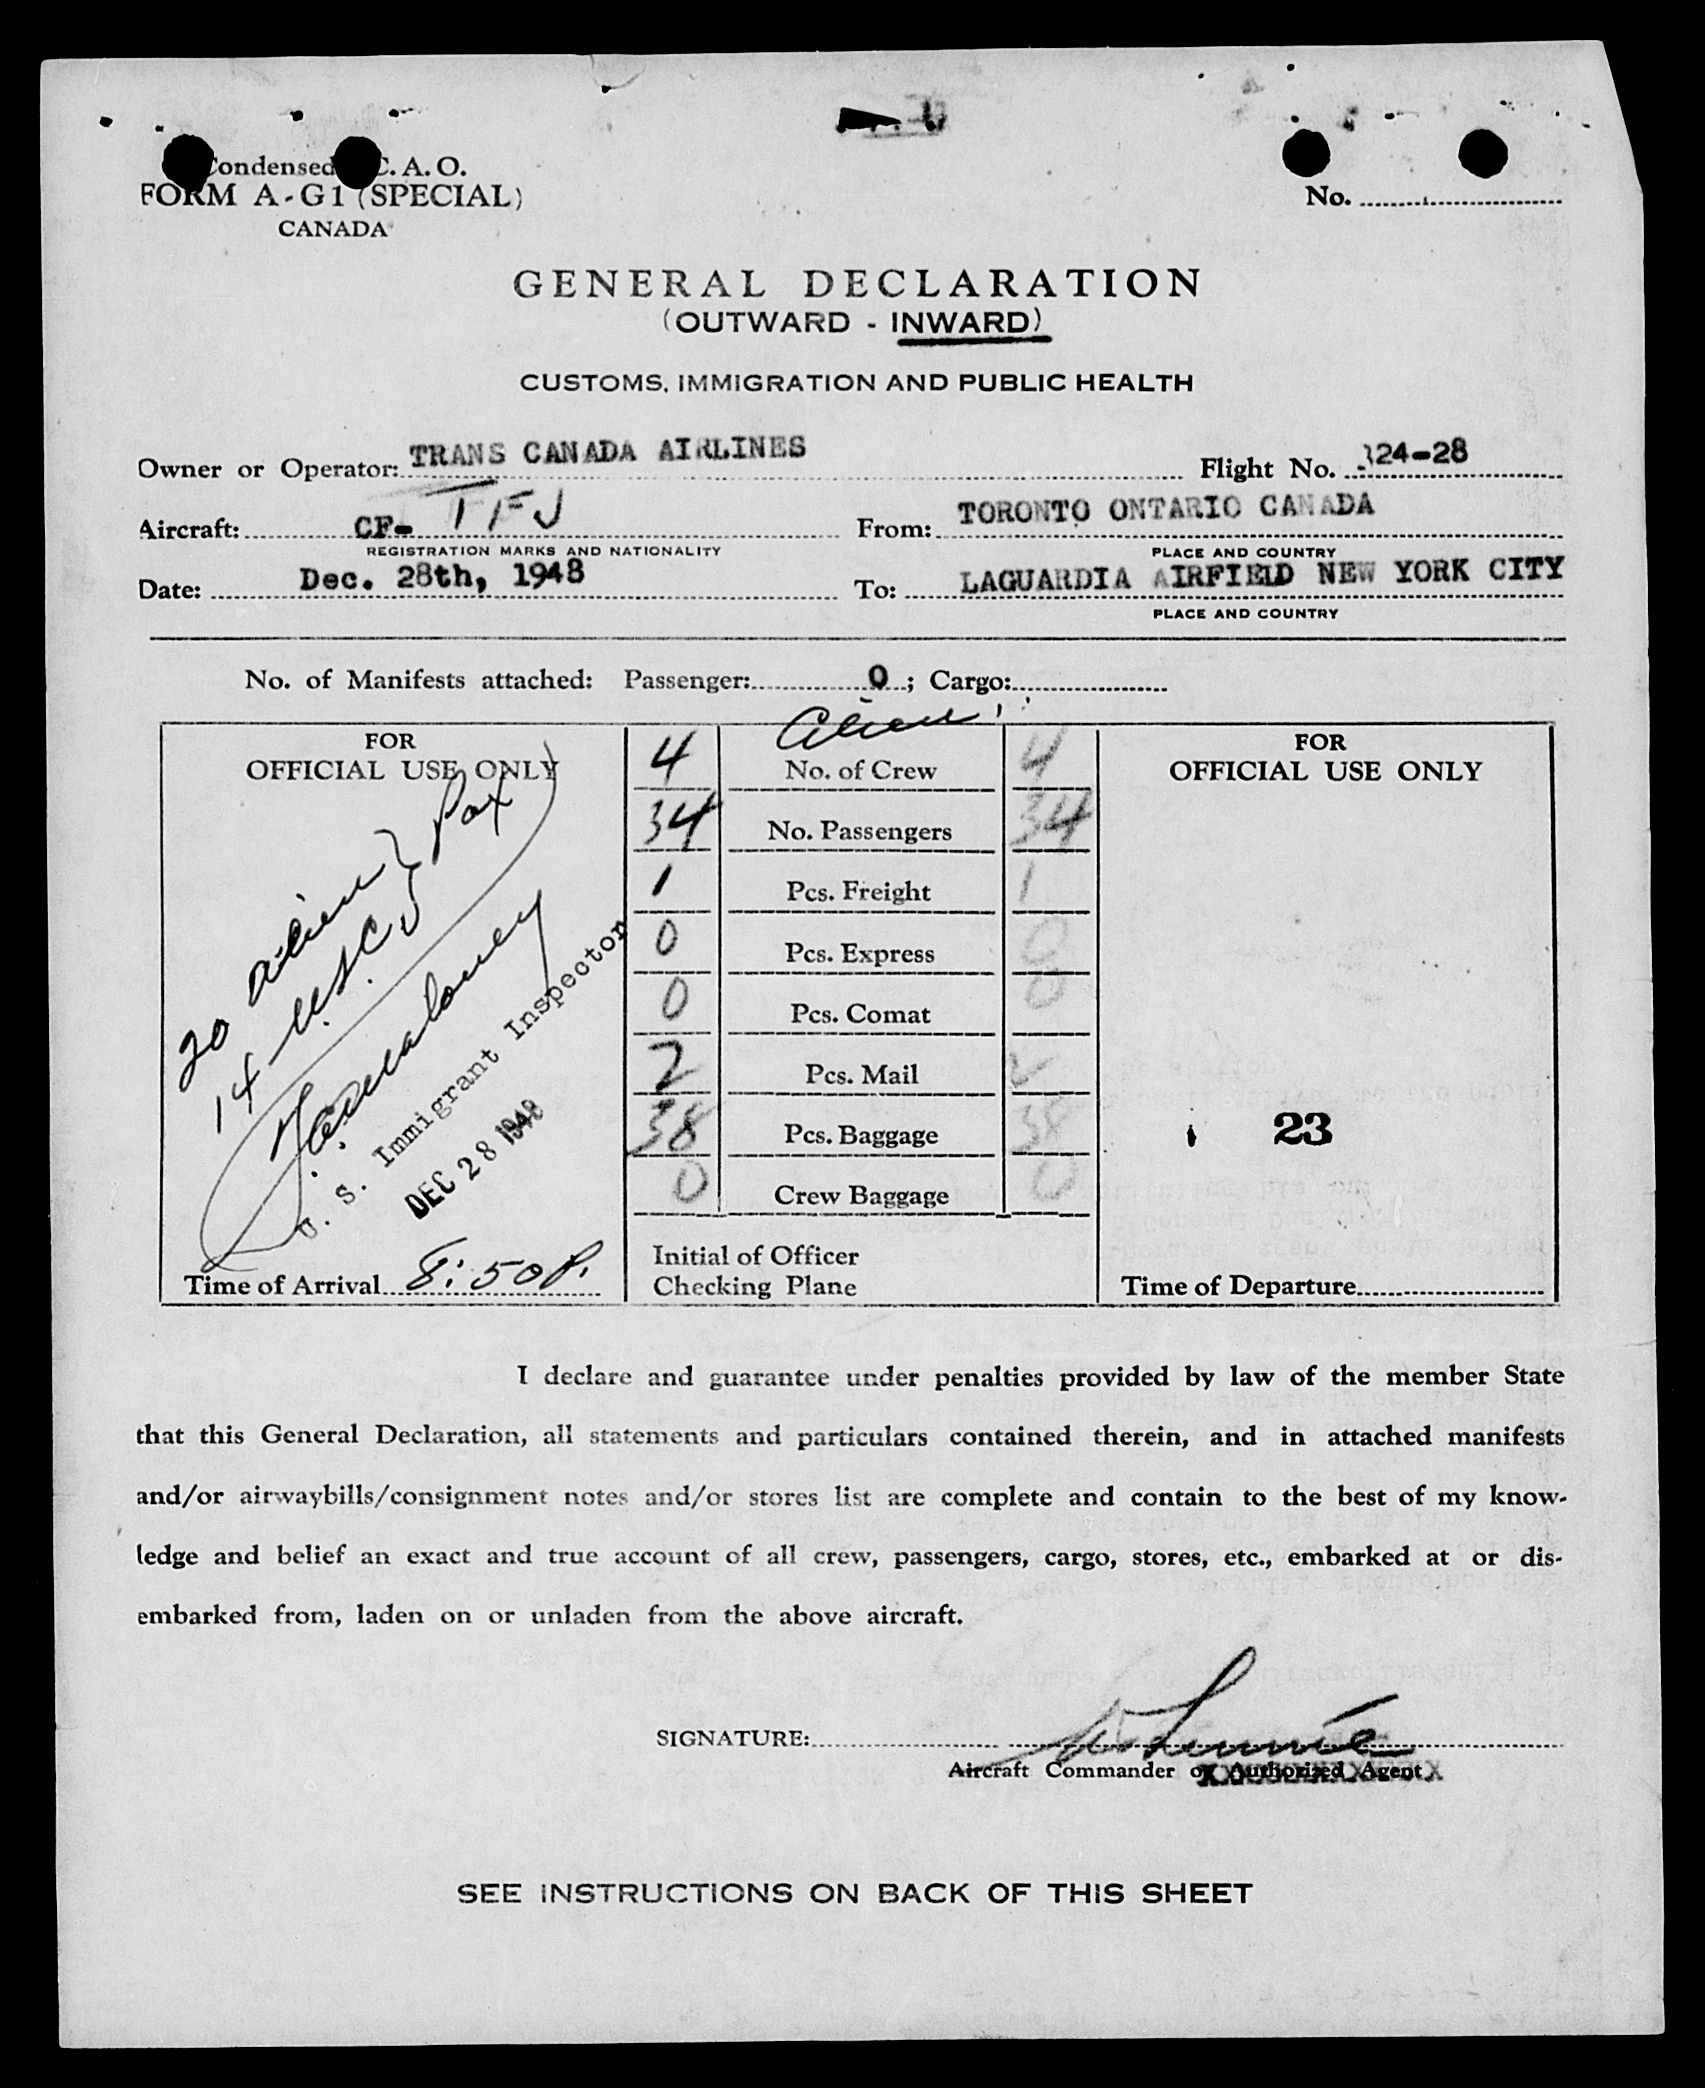 Condensed C. A. O.
FORM A-G1 (SPECIAL)
CANADA
No.
GENERAL DECLARATION
(OUTWARD - INWARD)
CUSTOMS, IMMIGRATION AND PUBLIC HEALTH
Owner or Operator: TRANS CANADA AIRLINES Flight No. 324-28
Aircraft: CF- TFJ From: TORONTO ONTARIO CANADA
REGISTRATION MARKS AND NATIONALITY PLACE AND COUNTRY
Date: Dec. 28th, 1948 To: LAGUARDIA AIRFIELD NEW YORK CITY
PLACE AND COUNTRY
No. of Manifests attached: Passenger: 0; Cargo:
Alien
FOR
OFFICIAL USE ONLY
20 alien } Pax
14 USC
U. S. Immigrant Inspector
DEC 28 1948
Time of Arrival 8:50 P.
4 No. of Crew 4
34 No. Passengers 34
1 Pcs. Freight 1
0 Pcs. Express 0
0 Pcs. Comat 0
2 Pcs. Mail 2
38 Pcs. Baggage 38
0 Crew Baggage 0
Initial of Officer
Checking Plane
FOR
OFFICIAL USE ONLY
23
Time of Departure
I declare and guarantee under penalties provided by law of the member State
that this General Declaration, all statements and particulars contained therein, and in attached manifests
and/or airwaybills/consignment notes and/or stores list are complete and contain to the best of my know-
ledge and belief an exact and true account of all crew, passengers, cargo, stores, etc., embarked at or dis-
embarked from, laden on or unladen from the above aircraft.
SIGNATURE:
Aircraft Commander or Authorized Agent
SEE INSTRUCTIONS ON BACK OF THIS SHEET